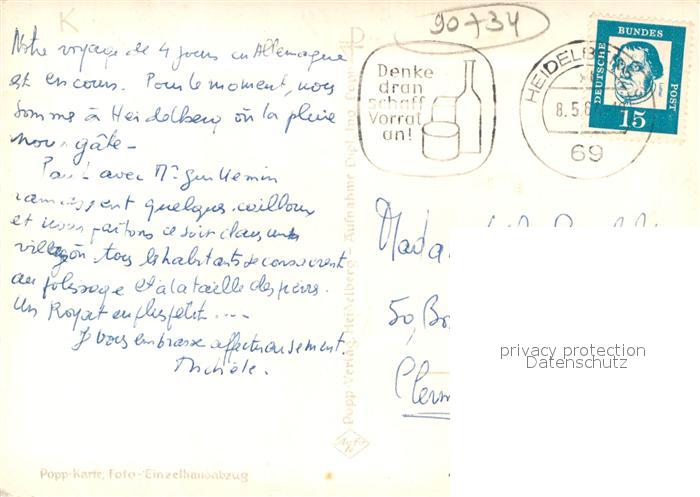 K
90+34
Notre voyage de 4 jours en Allemagne
est en cours. Pour le moment, nous
sommes à Heidelberg où la pluie
nous gâte -
Paul avec Mr Guillemin
ramassent quelques cailloux
et nous partons ce soir dans un
village où tous les habitants se consacrent
au polissage et à la taille des pierres.
Un Royat en plus petit ....
Je vous embrasse affectueusement.
Michèle.
Popp-Karte, Foto-Einzelhandabzug
Popp-Verlag, Heidelberg - Aufnahme Dipl. Ing.
Agfa
Denke
dran
schaff
Vorrat
an!
HEIDELB
8.5.6
69
DEUTSCHE
BUNDES
POST
15
Mada
50, B
Clerm
privacy protection
Datenschutz